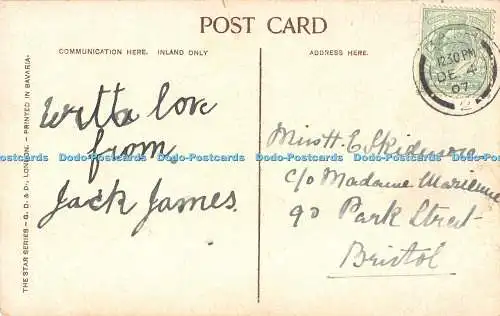 POST CARD
COMMUNICATION HERE. INLAND ONLY
ADDRESS HERE.
12.30 PM
DE 4
07
2
With love
from
Jack James.
Miss H. E.
c/o Madame
90 Park Street
Bristol
THE STAR SERIES – G. D. & D., LONDON. – PRINTED IN BAVARIA.
Dodo-Postcards Dodo-Postcards Dodo-Postcards Dodo-Postcards Dodo-Postcards Dodo-Postcards